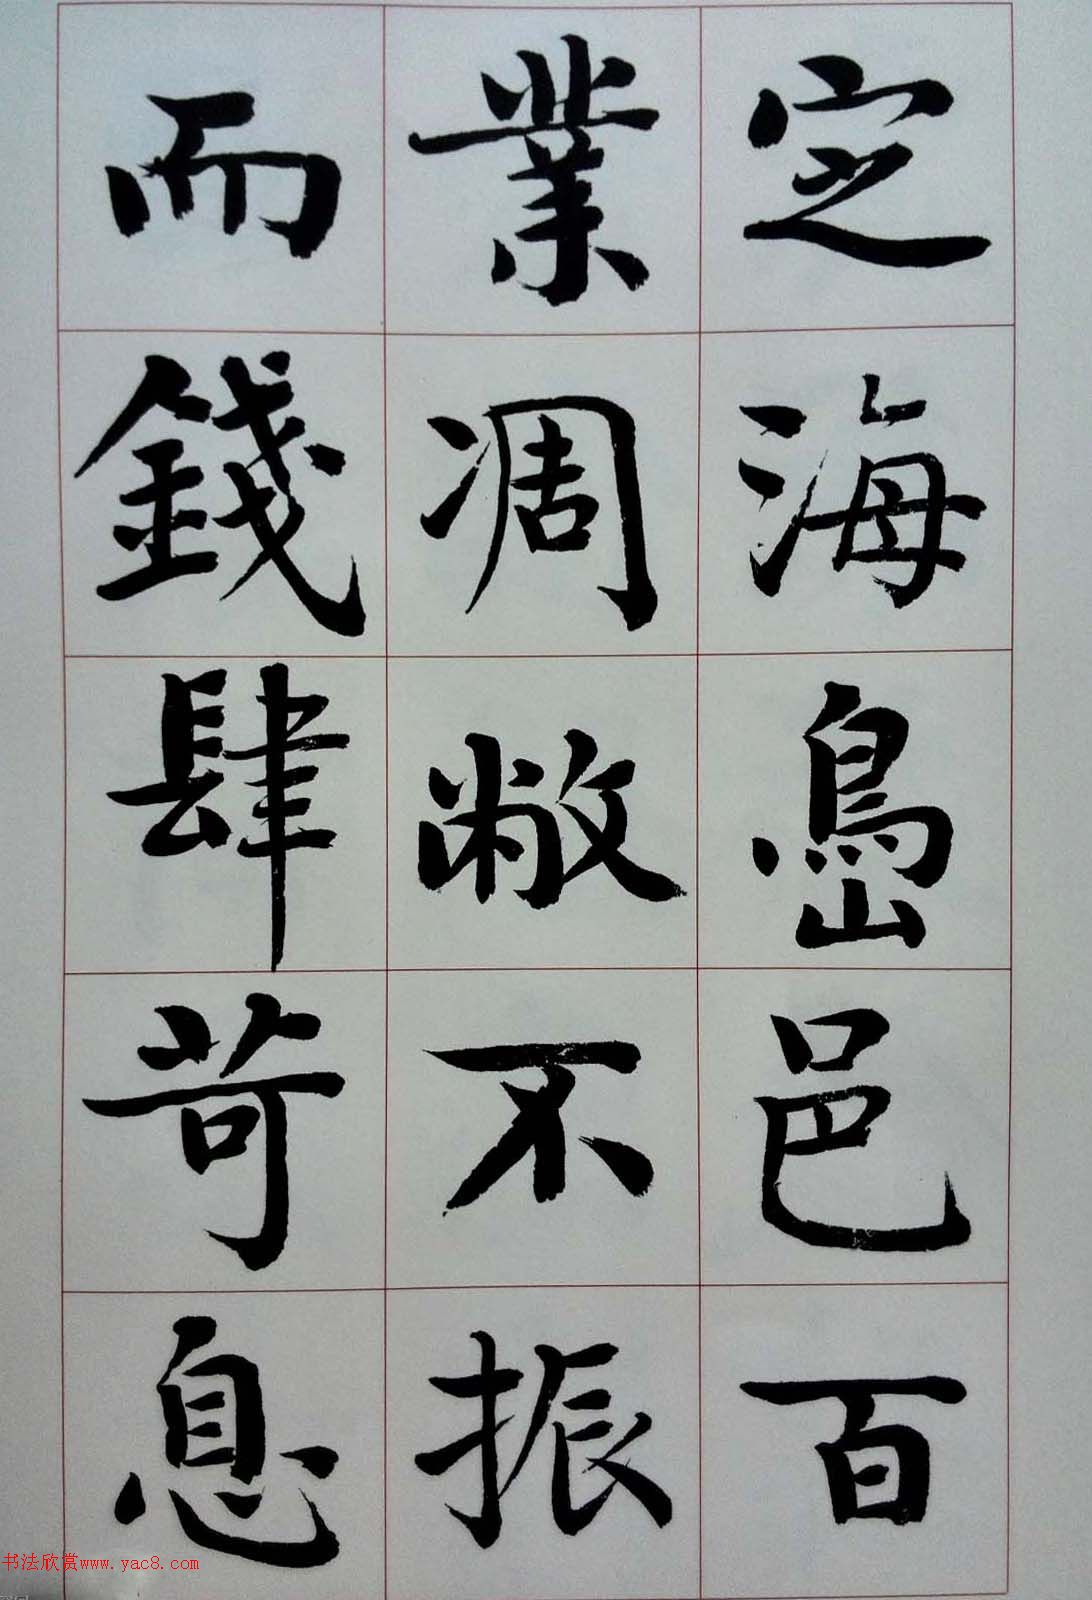 定海嶌邑百
業凋敝不振
而錢肆苛息
书法欣赏www.yac8.com